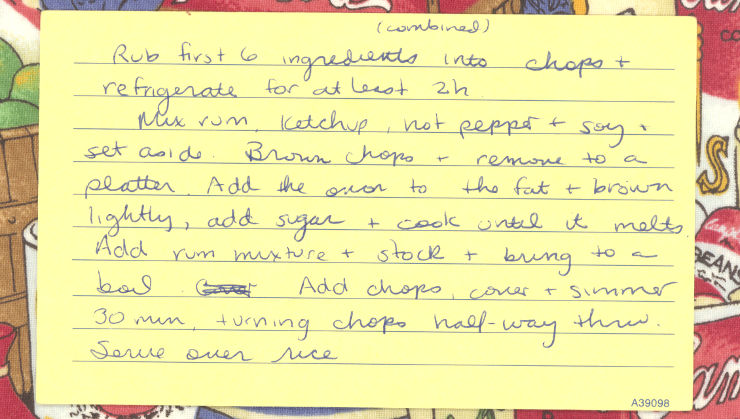 (combined)
Rub first 6 ingredients into chops +
refrigerate for at least 2h
Mix rum, ketchup, hot pepper + soy +
set aside. Brown chops + remove to a
platter. Add the onion to the fat + brown
lightly, add sugar + cook until it melts.
Add rum mixture + stock + bring to a
boil. Add chops, cover + simmer
30 min, turning chops half-way thru.
Serve over rice
A39098